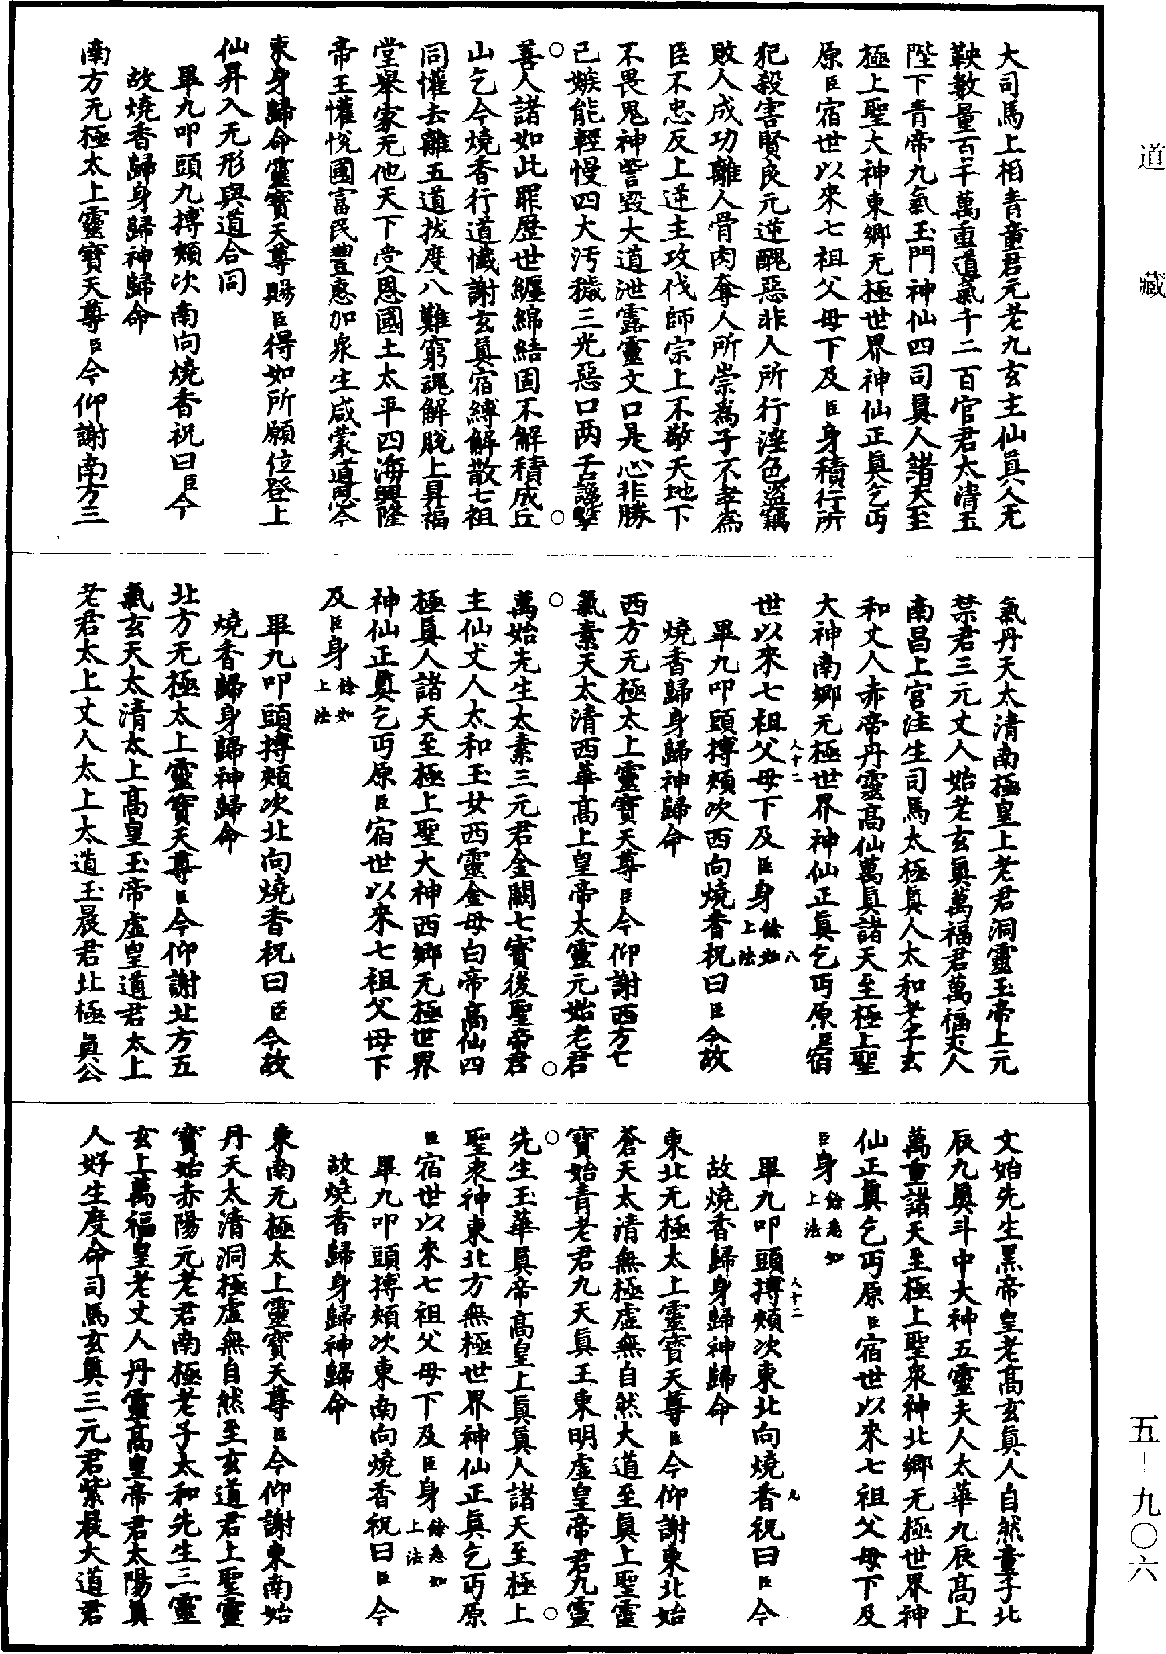 道藏
五—九〇六
大司馬上相青童君元老九玄主仙真人无
鞅數量百千萬重道氣千二百官君太清玉
陛下青帝九氣玉門神仙四司真人諸天至
極上聖大神東鄉无極世界神仙正真乞丐
原臣宿世以來七祖父母下及臣身積行所
犯殺害賢良元逆醜惡非人所行淫色盜竊
敗人成功離人骨肉奪人所崇為子不孝為
臣不忠反上逆主攻伐師宗上不敬天地下
不畏鬼神訾毀大道泄露靈文口是心非勝
己嫉能輕慢四大汚穢三光惡口两舌讒擊
善人諸如此罪歷世纏綿結固不解積成丘
山乞今燒香行道懺謝玄真宿縛解散七祖
同懽去離五道拔度八難窮魂解脫上昇福
堂舉家无他天下受恩國土太平四海興隆
帝王懽悅國富民豐惠加眾生咸蒙道恩今
束身歸命靈寶天尊賜臣得如所願位登上
仙昇入无形與道合同
畢九叩頭九搏頰次南向燒香祝曰臣今
故燒香歸身歸神歸命
南方无極太上靈寶天尊臣今仰謝南方三
氣丹天太清南極皇上老君洞靈玉帝上元
禁君三元丈人始老玄真萬福君萬福丈人
南昌上宮注生司馬太極真人太和老子玄
和丈人赤帝丹靈高仙萬真諸天至極上聖
大神南鄉无極世界神仙正真乞丐原臣宿
世以來七祖父母下及臣身餘如上法
八十二
八
畢九叩頭搏頰次西向燒香祝曰臣今故
燒香歸身歸神歸命
西方无極太上靈寶天尊臣今仰謝西方七
氣素天太清西華高上皇帝太靈元始老君
萬始先生太素三元君金闕七寶後聖帝君
主仙丈人太和玉女西靈金母白帝高仙四
極真人諸天至極上聖大神西鄉无極世界
神仙正真乞丐原臣宿世以來七祖父母下
及臣身餘如上法
畢九叩頭搏頰次北向燒香祝曰臣今故
燒香歸身歸神歸命
北方无極太上靈寶天尊臣今仰謝北方五
氣玄天太清太上高皇玉帝虛皇道君太上
老君太上丈人太上大道玉晨君北極真公
文始先生黑帝皇老高玄真人自然童子北
辰九真斗中大神五靈夫人太華九辰高上
萬重諸天至極上聖眾神北鄉无極世界神
仙正真乞丐原臣宿世以來七祖父母下及
臣身餘悉如上法
八十二
九
畢九叩頭搏頰次東北向燒香祝曰臣今
故燒香歸身歸神歸命
東北无極太上靈寶天尊臣今仰謝東北始
蒼天太清無極虛無自然大道至真上聖靈
寶始青老君九天真王東明虛皇帝君九靈
先生玉華真帝高皇上真真人諸天至極上
聖衆神東北方無極世界神仙正真乞丐原
臣宿世以來七祖父母下及臣身餘悉如上法
畢九叩頭搏頰次東南向燒香祝曰臣今
故燒香歸身歸神歸命
東南无極太上靈寶天尊臣今仰謝東南始
丹天太清洞極虛無自然至玄道君上聖靈
寶始赤陽元老君南極老子太和先生三靈
玄上萬福皇老丈人丹靈高皇帝君太陽真
人好生度命司馬玄真三元君紫晨大道君